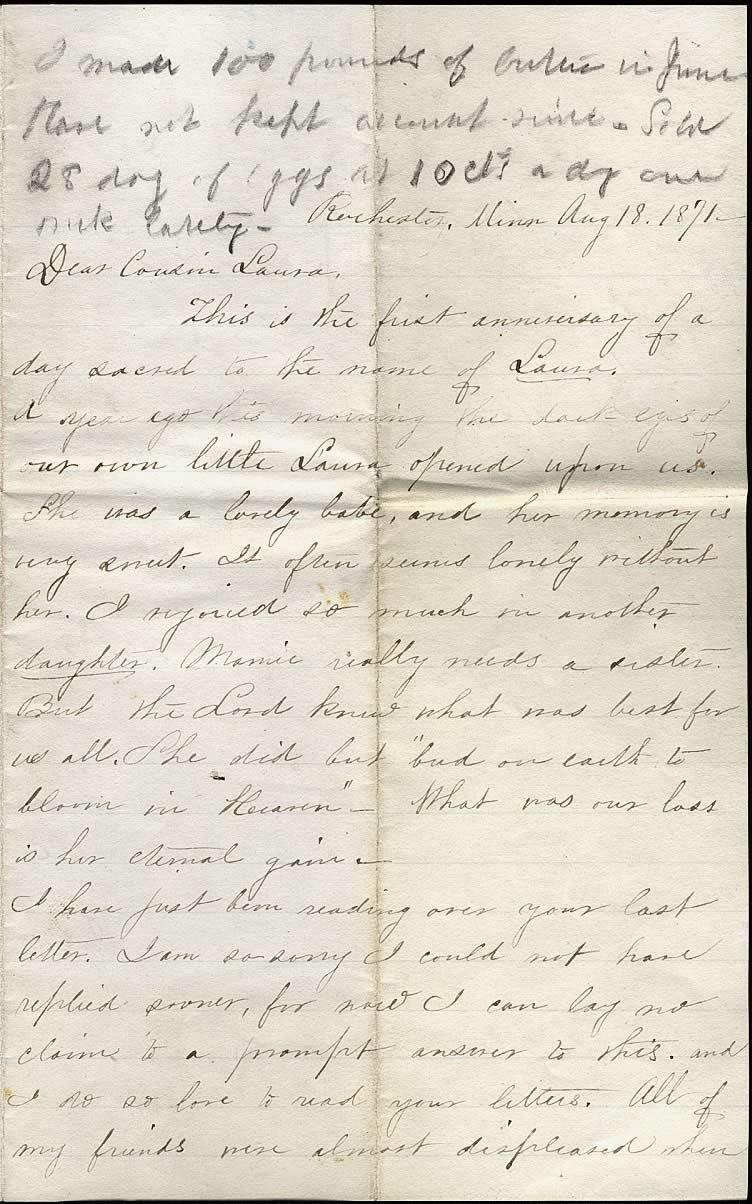 I made 100 pounds of butter in June
Have not kept account since. Sold
28 doz of eggs at 10 cts a doz one
week lately -
Rochester, Minn Aug 18. 1871 -
Dear Cousin Laura,
This is the first anniversary of a
day sacred to the name of Laura.
A year ago this morning the dark eyes of
our own little Laura opened upon us.
She was a lovely babe, and her memory is
very sweet. It often seems lonely without
her. I rejoiced so much in another
daughter. Mamie really needs a sister.
But the Lord knew what was best for
us all. She did but "bud on earth to
bloom in Heaven" - What was our loss
is her eternal gain -
I have just been reading over your last
letter. I am so sorry I could not have
replied sooner, for now I can lay no
claim to a prompt answer to this. and
I do so love to read your letters. All of
my friends were almost displeased when